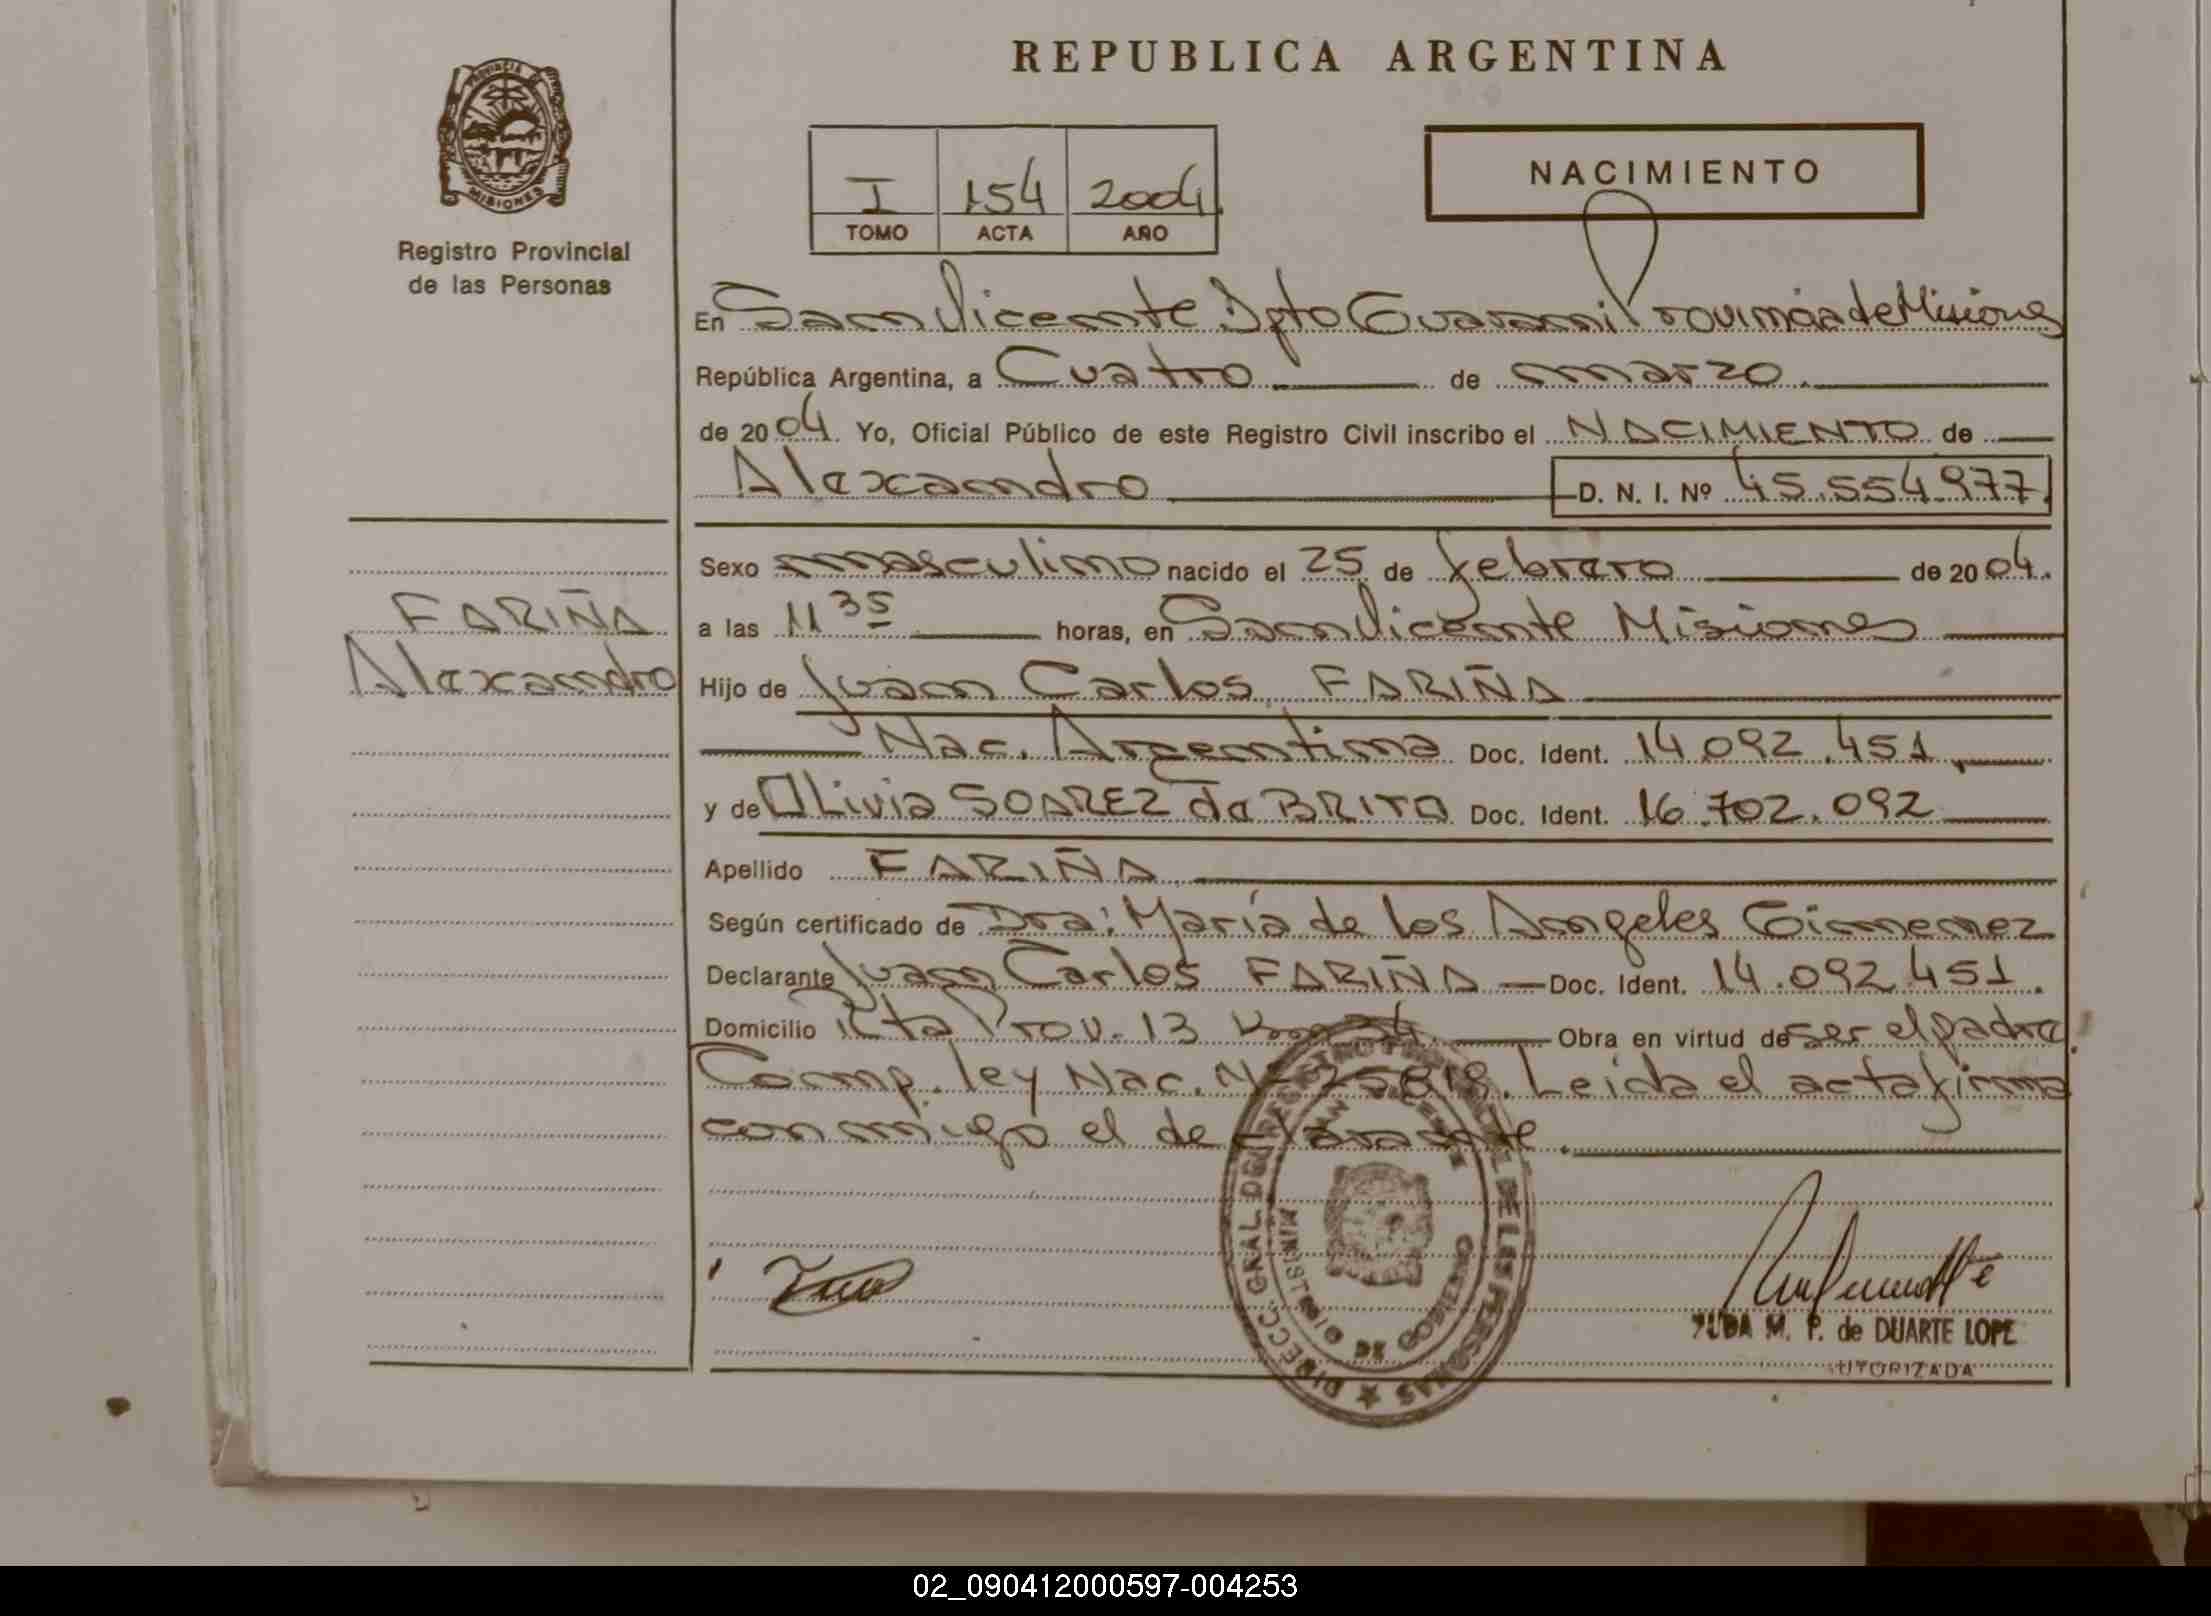 REPUBLICA ARGENTINA
PROVINCIA DE
MISIONES
Registro Provincial
de las Personas
I 154 2004
TOMO ACTA AÑO
NACIMIENTO
En San Vicente Dpto Guarani Provincia de Misiones
República Argentina, a Cuatro de marzo
de 2004. Yo, Oficial Público de este Registro Civil inscribo el NACIMIENTO de
Alexandro D. N. I. Nº 45.554.977
Sexo masculino nacido el 25 de febrero de 2004.
FARIÑA
Alexandro
a las 11 35 horas, en San Vicente Misiones
Hijo de Juan Carlos FARIÑA
Nac. Argentina Doc. Ident. 14.092.451
y de OLivia SOAREZ da BRITO Doc. Ident. 16.702.092
Apellido FARIÑA
Según certificado de Dra: María de los Angeles Gimenez
Declarante Juan Carlos FARIÑA Doc. Ident. 14.092.451.
Domicilio Rta Prov. 13 Km 34. Obra en virtud de ser el padre.
Comp. ley Nac. Nº 25.818. Leida el acta firma
conmigo el declarante.
DIRECC. GRAL. DEL REGISTRO PROVINCIAL DE LAS PERSONAS
SAN VICENTE
MINISTERIO DE GOBIERNO
M. P. de DUARTE LOPE
UTORIZADA
02_090412000597-004253